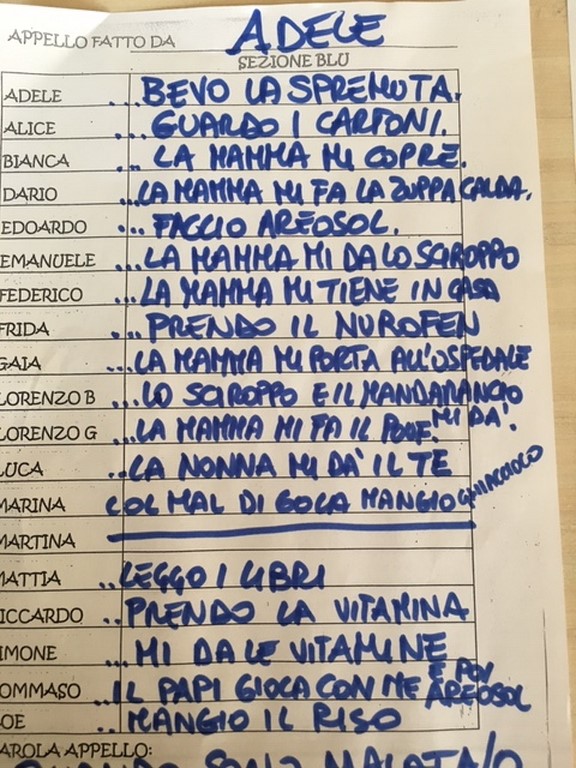 APPELLO FATTO DA ADELE
SEZIONE BLU
ADELE ...BEVO LA SPREMUTA.
ALICE ...GUARDO I CARTONI.
BIANCA ... LA MAMMA MI COPRE.
DARIO ...LA MAMMA MI FA LA ZUPPA CALDA.
EDOARDO ... FACCIO AREOSOL.
EMANUELE ...LA MAMMA MI DA LO SCIROPPO
FEDERICO ...LA MAMMA MI TIENE IN CASA
FRIDA ... PRENDO IL NUROFEN
GAIA ...LA MAMMA MI PORTA ALL'OSPEDALE
LORENZO B ...LO SCIROPPO E IL MANDARANCIO MI DA'.
LORENZO G ...LA MAMMA MI FA IL
LUCA ..LA NONNA MI DA' IL TE
MARINA COL MAL DI GOLA MANGIO GHIACCIOLO
MARTINA
MATTIA ..LEGGO I LIBRI
RICCARDO ..PRENDO LA VITAMINA
IMONE ...MI DA LE VITAMINE
OMMASO ..IL PAPI GIOCA CON ME E POI AREOSOL
OE ..MANGIO IL RISO
AROLA APPELLO:
QUANDO SONO MALATA/O